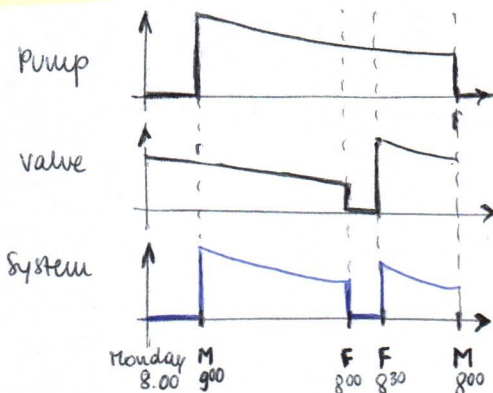 Pump
Valve
System
Monday M F F M
8.00 9⁰⁰ 8⁰⁰ 8³⁰ 8⁰⁰